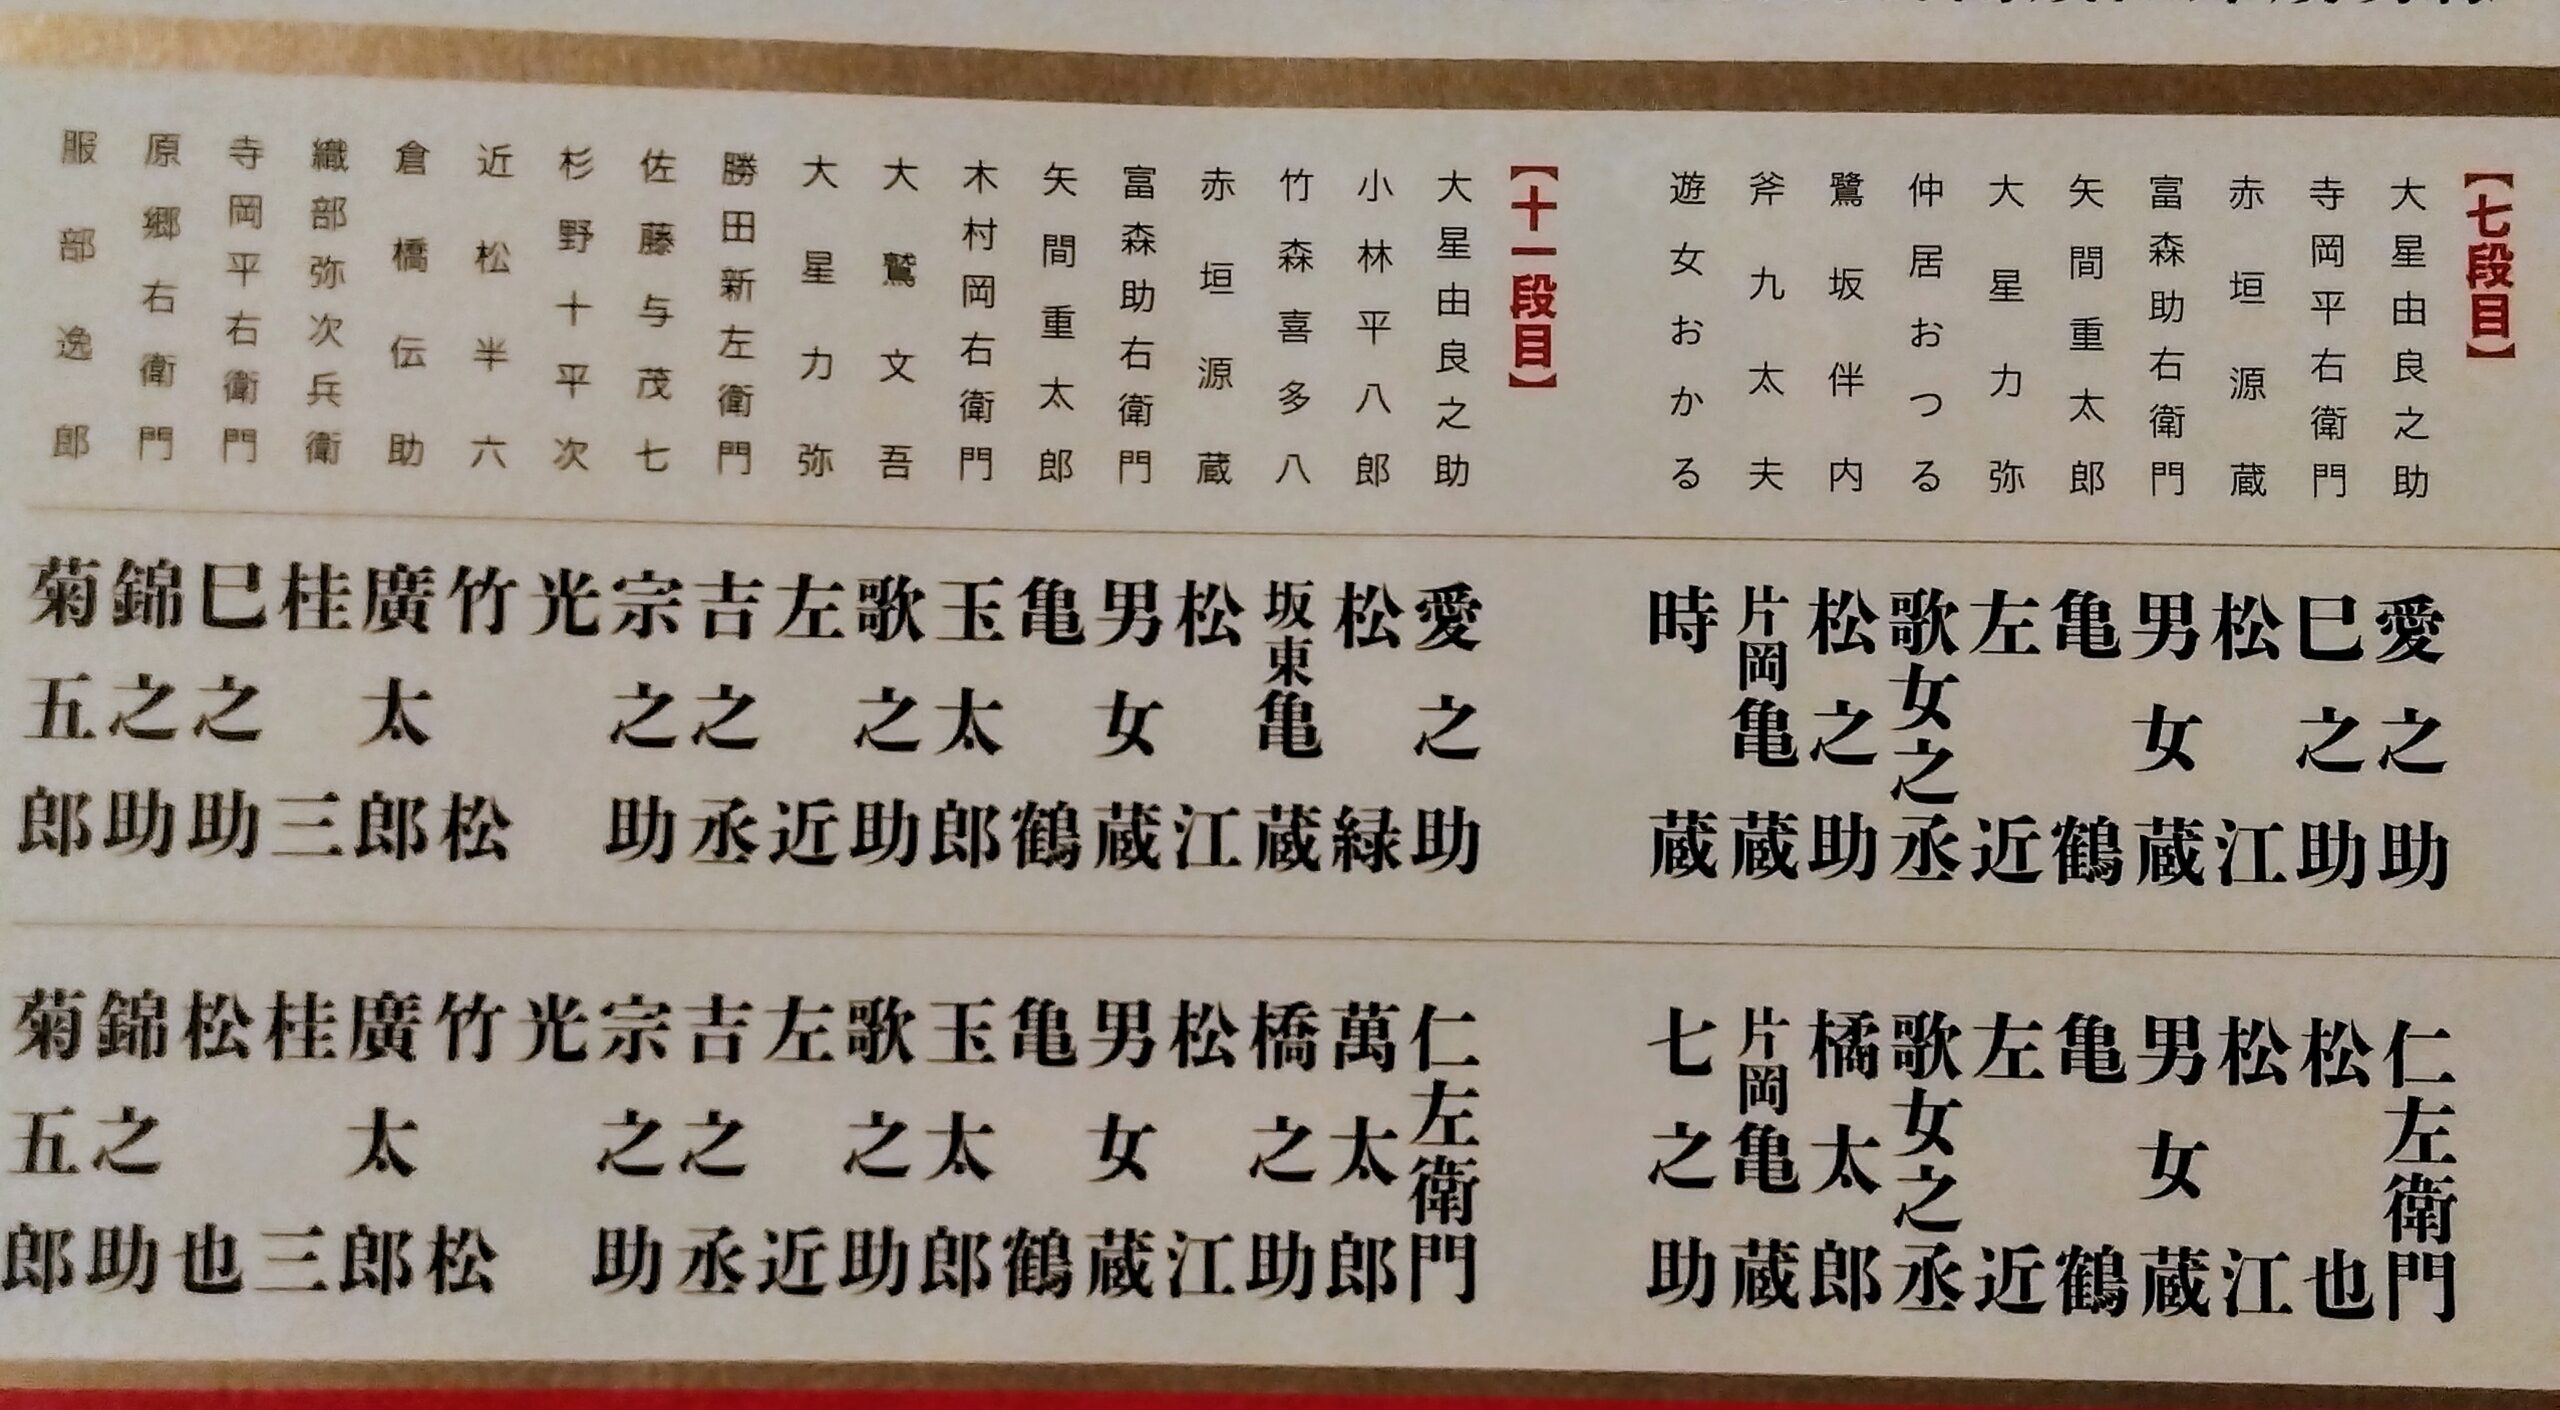 【七段目】
大星由良之助
寺岡平右衛門
赤垣源蔵
富森助右衛門
矢間重太郎
大星力弥
仲居おつる
鷺坂伴内
斧九太夫
遊女おかる
【十一段目】
大星由良之助
小林平八郎
竹森喜多八
赤垣源蔵
富森助右衛門
矢間重太郎
木村岡右衛門
大鷲文吾
大星力弥
勝田新左衛門
佐藤与茂七
杉野十平次
近松半六
倉橋伝助
織部弥次兵衛
寺岡平右衛門
原郷右衛門
服部逸郎
愛之助
巳之助
松江
男女蔵
亀鶴
左近
歌女之丞
松之助
片岡亀蔵
時蔵
愛之助
松緑
坂東亀蔵
松江
男女蔵
亀鶴
玉太郎
歌之助
左近
吉之丞
宗之助
光
竹松
廣太郎
桂三
巳之助
錦之助
菊五郎
仁左衛門
松也
松江
男女蔵
亀鶴
左近
歌女之丞
橘太郎
片岡亀蔵
七之助
仁左衛門
萬太郎
橋之助
松江
男女蔵
亀鶴
玉太郎
歌之助
左近
吉之丞
宗之助
光
竹松
廣太郎
桂三
松也
錦之助
菊五郎